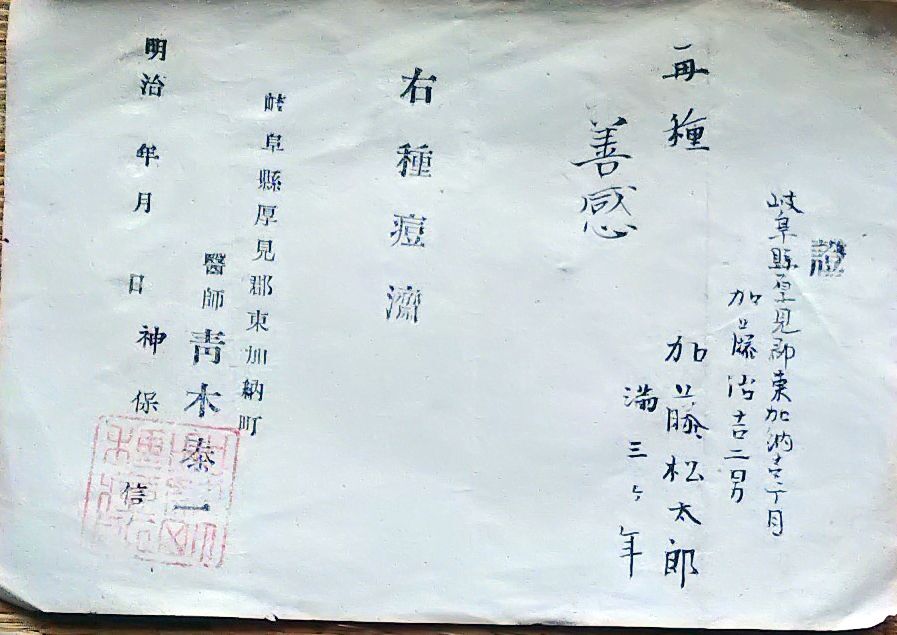 證
岐阜縣厚見郡東加納壱丁目
加藤治吉二男
加藤松太郎
満三ヶ年
再種
善感
右種痘濟
岐阜縣厚見郡東加納町
醫師 青木泰一
明治 年 月 日 神保信